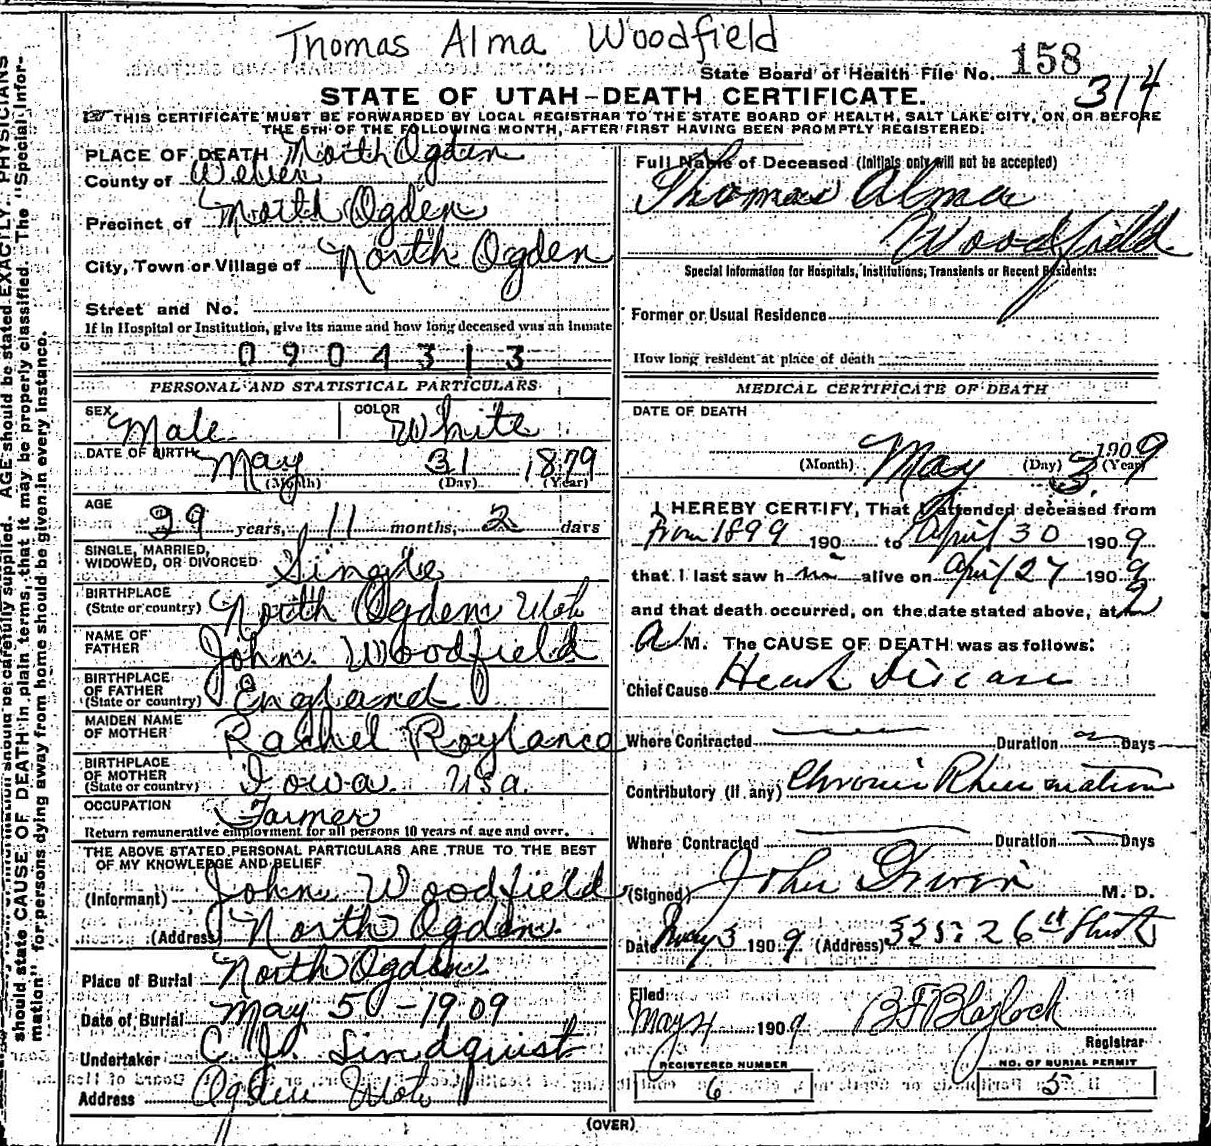 Thomas Alma Woodfield
State Board of Health File No. 158
314
STATE OF UTAH-DEATH CERTIFICATE.
THIS CERTIFICATE MUST BE FORWARDED BY LOCAL REGISTRAR TO THE STATE BOARD OF HEALTH, SALT LAKE CITY, ON OR BEFORE
THE 5TH OF THE FOLLOWING MONTH, AFTER FIRST HAVING BEEN PROMPTLY REGISTERED.
PLACE OF DEATH North Ogden
County of Weber
Precinct of North Ogden
City, Town or Village of North Ogden
Street and No.
If in Hospital or Institution, give its name and how long deceased was an inmate
0904313
PERSONAL AND STATISTICAL PARTICULARS
SEX Male COLOR White
DATE OF BIRTH May 31 1879
(Month) (Day) (Year)
AGE
29 years, 11 months, 2 days
SINGLE, MARRIED,
WIDOWED, OR DIVORCED Single
BIRTHPLACE
(State or country) North Ogden Utah
NAME OF
FATHER John Woodfield
BIRTHPLACE
OF FATHER
(State or country) England
MAIDEN NAME
OF MOTHER Rachel Roylance
BIRTHPLACE
OF MOTHER
(State or country) Iowa USa.
OCCUPATION Farmer
Return remunerative employment for all persons 10 years of age and over.
THE ABOVE STATED PERSONAL PARTICULARS ARE TRUE TO THE BEST
OF MY KNOWLEDGE AND BELIEF
(Informant) John Woodfield
(Address) North Ogden.
Place of Burial North Ogden
Date of Burial May 5 - 1909
Undertaker C. J. Lindquist
Address Ogden Utah
Full Name of Deceased (Initials only will not be accepted)
Thomas Alma
Woodfield
Special Information for Hospitals, Institutions, Transients or Recent Residents:
Former or Usual Residence
How long resident at place of death
MEDICAL CERTIFICATE OF DEATH
DATE OF DEATH
May 3 1909
(Month) (Day) (Year)
I HEREBY CERTIFY, That I attended deceased from
from 1899 190 to April 30 1909
that I last saw h im alive on April 27 1909
and that death occurred, on the date stated above, at 2
A M. The CAUSE OF DEATH was as follows:
Chief Cause Heart Disease
Where Contracted Duration Days
Contributory (if any) Chronic Rheumatism
Where Contracted Duration Days
(Signed) John M. D.
Date May 3 1909 (Address) 325: 26th Street
Filed
May 4 1909 B F Blaylock
Registrar
REGISTERED NUMBER NO. OF BURIAL PERMIT
6 5
(OVER)
AGE should be stated EXACTLY. PHYSICIANS
should state CAUSE OF DEATH in plain terms, that it may be properly classified. The "Special Infor-
mation" for persons dying away from home should be given in every instance.